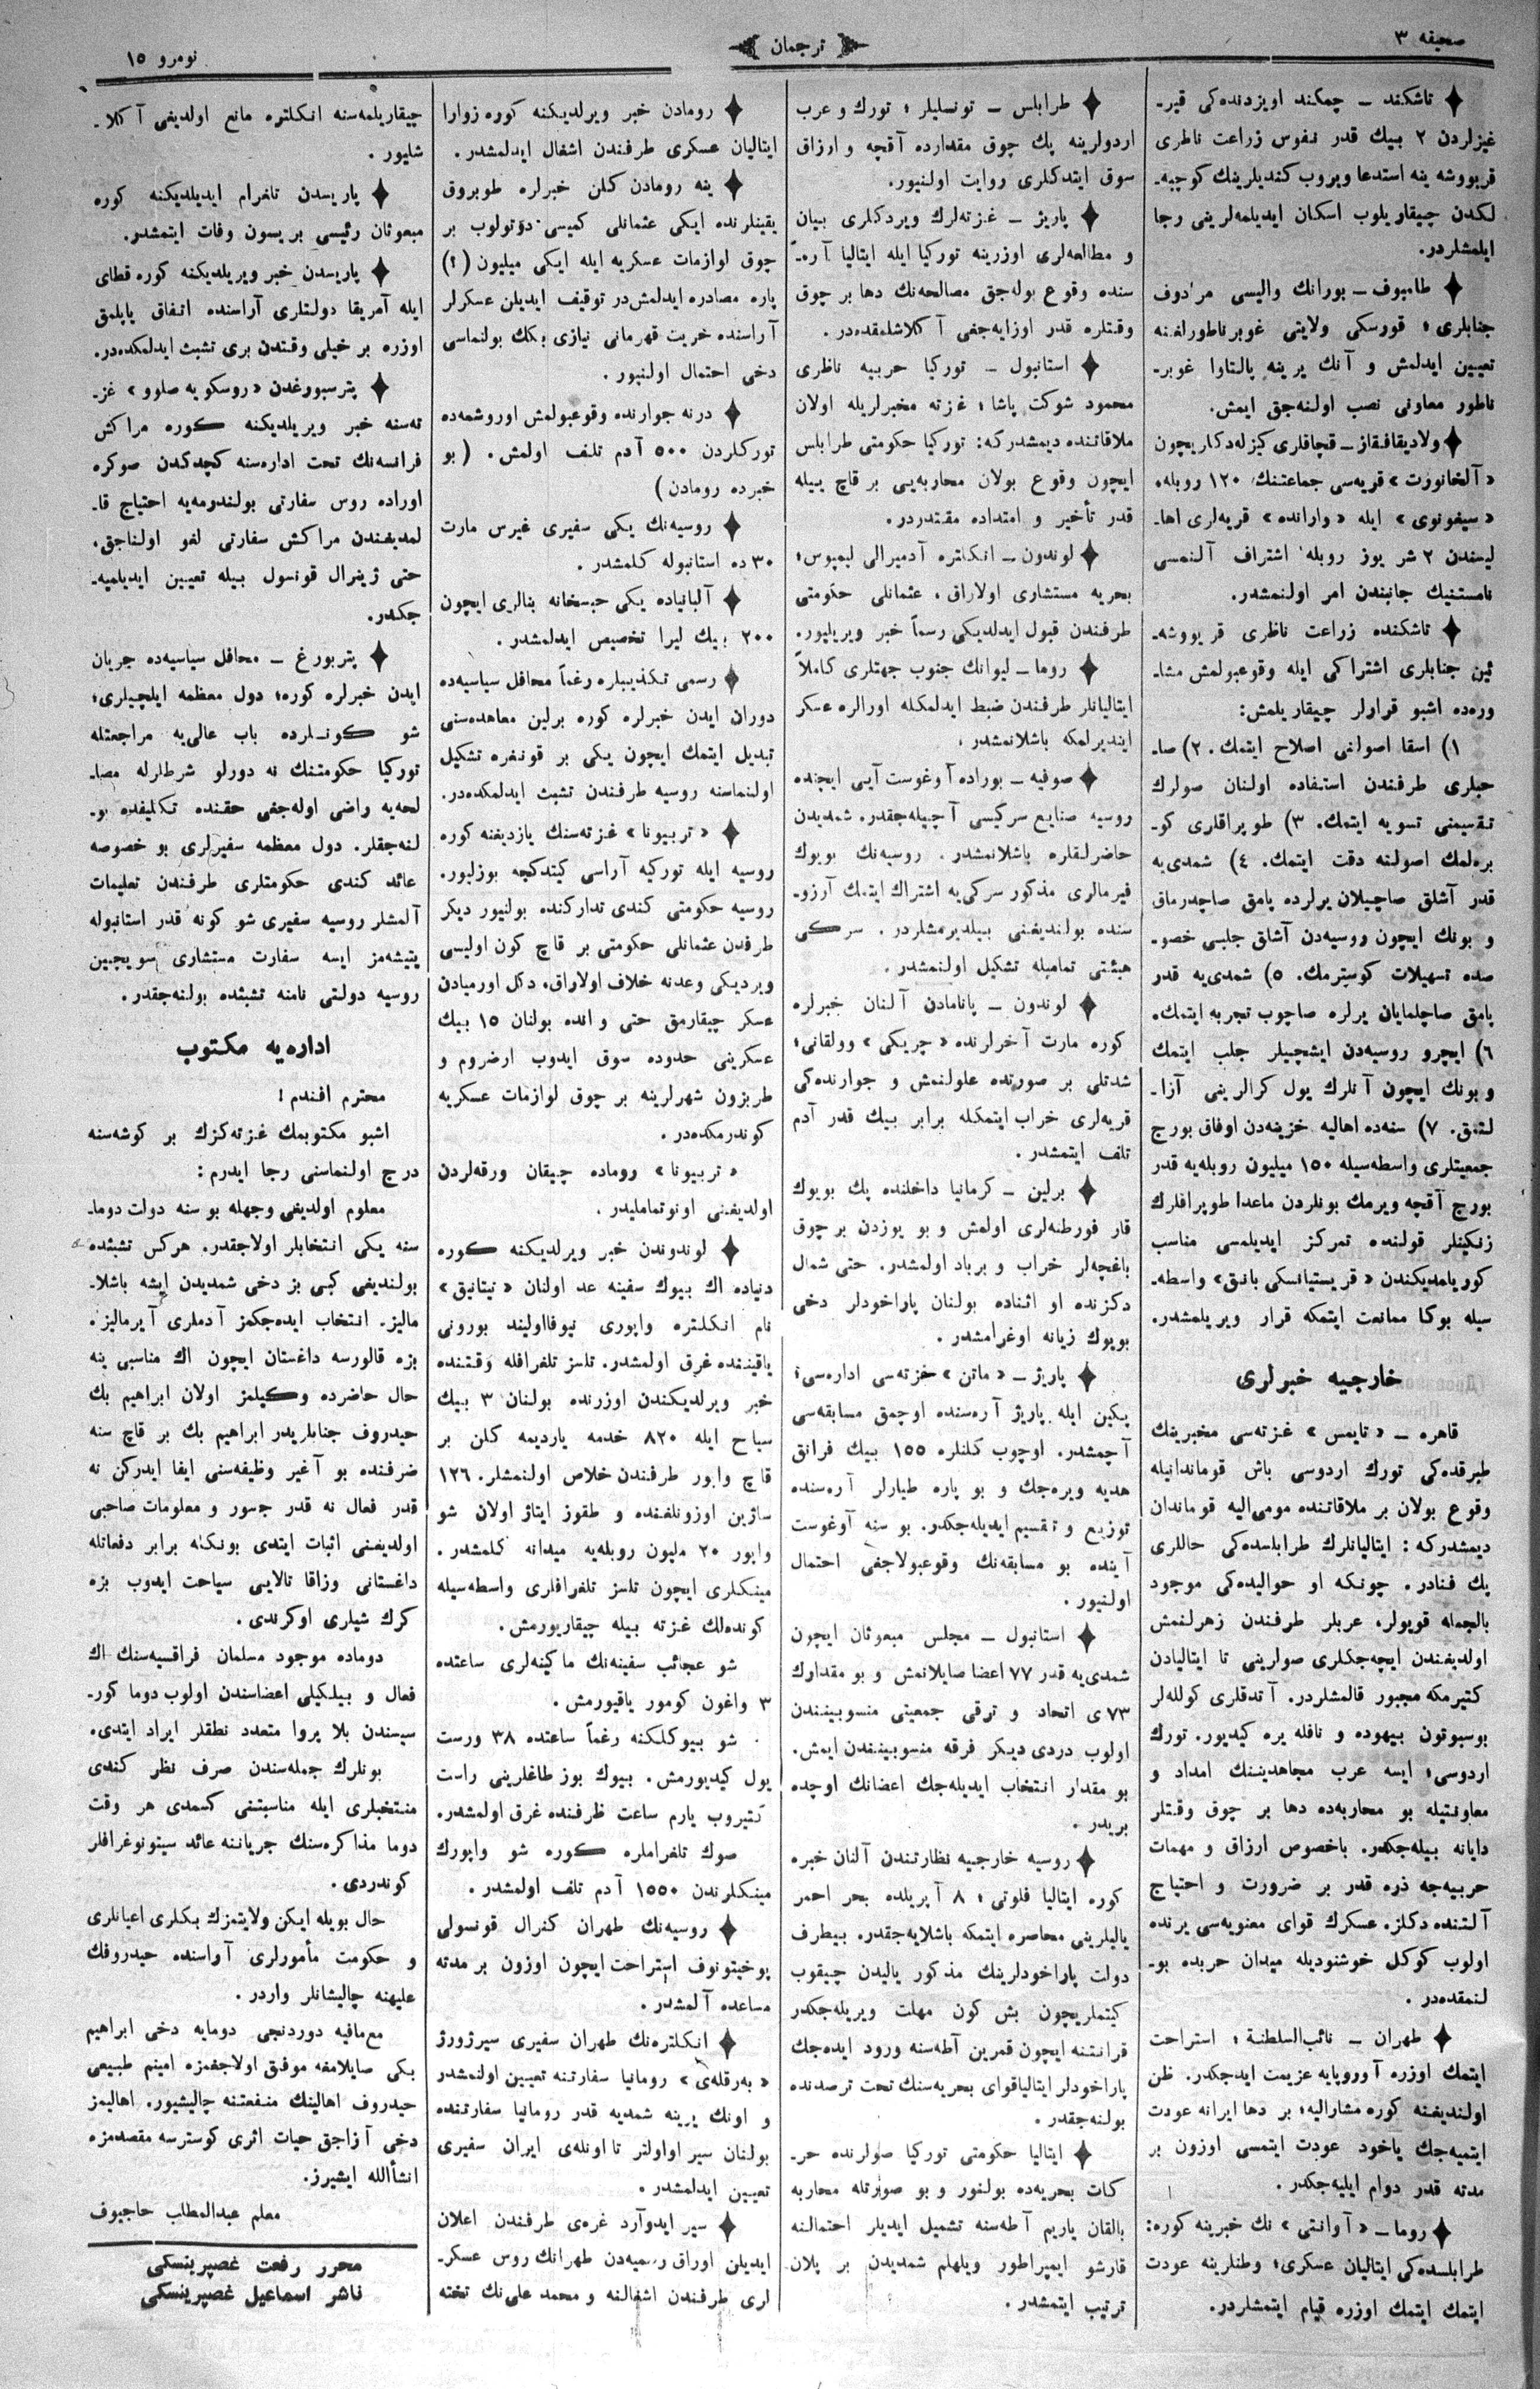 صحيفه ٣
ترجمان
نومرو ١٥
تاشكند ــ چمكند اويزدنده‌كى قير‌ـ
غيزلردن ٢ بيك قدر نفوس زراعت ناظرى
قريووشه ينه استدعا ويروب كنديلرينك كوچبه‌ـ
لكدن چيقاريلوب اسكان ايديلمه‌لرينى رجا
ايلمشلردر.
طامبوف ــ بورانك واليسى مرادوف
جنابلرى ؛ قورسكى ولايتى غوبرناطورلغنه
تعيين ايدلمش و آنك يرينه پالتاوا غوبر‌ـ
ناطور معاونى نصب اولنه‌جق ايمش.
ولاديقافقاز ــ قچاقلرى كيزله‌دكلريچون
«آلخانورت» قريه‌سى جماعتنك ١٢٠ روبله،
«سيفونوى» ايله «وارانده» قريه‌لرى اها‌ـ
ليسندن ٢ شر يوز روبله اشتراف آلنمسى
نامستنيك جانبندن امر اولنمشدر.
تاشكنده زراعت ناظرى قريووشه‌ـ
ئين جنابلرى اشتراكى ايله وقوعبولمش مشا‌ـ
وره‌ده اشبو قرارلر چيقاريلمش:
١) اسقا اصولنى اصلاح ايتمك. ٢) صا‌ـ
حبلرى طرفندن استفاده اولنان صولرك
تقسيمنى تسويه ايتمك. ٣) طوپراقلرى كو‌ـ
بره‌لمك اصولنه دقت ايتمك. ٤) شمدى‌يه
قدر آشلق صاچيلان يرلرده پامق صاچدرماق
و بونك ايچون روسيه‌دن آشلق جلبى خصو‌ـ
صده تسهيلات كوسترمك. ٥) شمدى‌يه قدر
پامق صاچلمايان يرلره صاچوب تجربه ايتمك.
٦) ايچرو روسيه‌دن ايشچيلر جلب ايتمك
و بونك ايچون آنلرك يول كرالرينى آزا‌ـ
لتمق. ٧) سنه‌ده اهاليه خزينه‌دن اوفاق بورج
جمعيتلرى واسطه‌سيله ١٥٠ ميليون روبله‌يه قدر
بورج آقچه ويرمك بونلردن ماعدا طوپراقلرك
زنكينلر قولنده تمركز ايديلمسى مناسب
كوريلمديكندن «قريستيانسكى بانق» واسطه‌ـ
سيله بوكا ممانعت ايتمكه قرار ويريلمشدر.
خارجيه خبرلرى
قاهره ــ «تايمس» غزته‌سى مخبرينك
طبرقده‌كى تورك اردوسى باش قوماندانيله
وقوع بولان بر ملاقاتنده مومى‌اليه قوماندان
ديمشدركه : ايتاليانلرك طرابلسده‌كى حاللرى
پك فنادر. چونكه او حواليده‌كى موجود
بالجمله قويولر، عربلر طرفندن زهرلنمش
اولديغندن ايچه‌جكلرى صولرينى تا ايتاليادن
كتيرمكه مجبور قالمشلردر. آتدقلرى كولله‌لر
بوسبوتون بيهوده و نافله يره كيديور. تورك
اردوسى؛ ايسه عرب مجاهديننك امداد و
معاونتيله بو محاربه‌ده دها بر چوق وقتلر
دايانه بيله‌جكدر. باخصوص ارزاق و مهمات
حربيه‌جه ذره قدر بر ضرورت و احتياج
آلتنده دكلز. عسكرك قواى معنويه‌سى يرنده
اولوب كوكل خوشنوديله ميدان حربده بو‌ـ
لنمقده‌در.
طهران ــ نائب‌السلطنة ؛ استراحت
ايتمك اوزره آوروپايه عزيمت ايدجكدر. ظن
اولنديغنه كوره مشاراليه؛ بر دها ايرانه عودت
ايتميه‌جك ياخود عودت ايتمسى اوزون بر
مدته قدر دوام ايليه‌جكدر.
روما ــ «آوانتى» نك خبرينه كوره:
طرابلسده‌كى ايتاليان عسكرى؛ وطنلرينه عودت
ايتمك ايتمك اوزره قيام ايتمشلردر.
طرابلس ــ تونسليلر ؛ تورك و عرب
اردولرينه پك چوق مقدارده آقچه و ارزاق
سوق ايتدكلرى روايت اولنيور.
پاريژ ــ غزته‌لرك ويردكلرى بيان
و مطالعه‌لرى اوزرينه توركيا ايله ايتاليا آره‌ـ
سنده وقوع بوله‌جق مصالحه‌نك دها بر چوق
وقتلره قدر اوزايه‌جغى آكلاشلمقده‌در.
استانبول ــ توركيا حربيه ناظرى
محمود شوكت پاشا ؛ غزته مخبرلريله اولان
ملاقاتنده ديمشدركه: توركيا حكومتى طرابلس
ايچون وقوع بولان محاربه‌يى بر قاچ ييله
قدر تأخير و امتداده مقتدردر.
لوندون ــ انكلتره آدميرالى ليمپوس؛
بحريه مستشارى اولاراق، عثمانلى حكومتى
طرفندن قبول ايدلديكى رسماً خبر ويريليور.
روما ــ ليوانك جنوب جهتلرى كاملاً
ايتاليانلر طرفندن ضبط ايدلمكله اورالره عسكر
اينديرلمكه باشلانمشدر.
صوفيه ــ بوراده آوغوست آيى ايچنده
روسيه صنايع سركيسى آچيله‌جقدر. شمديدن
حاضرلقلره باشلانمشدر. روسيه‌نك بويوك
فيرمالرى مذكور سركى‌يه اشتراك ايتمك آرزو‌ـ
سنده بولنديغنى بيلديرمشلردر. سركى
هيئتى تماميله تشكيل اولنمشدر.
لوندون ــ پانامادن آلنان خبرلره
كوره مارت آخرلرنده «چريكى» وولقانى؛
شدتلى بر صورتده علولنمش و جوارنده‌كى
قريه‌لرى خراب ايتمكله برابر بيك قدر آدم
تلف ايتمشدر.
برلين ــ كرمانيا داخلنده پك بويوك
قار فورطنه‌لرى اولمش و بو يوزدن بر چوق
باغچه‌لر خراب و برباد اولمشدر. حتى شمال
دكزنده او اثناده بولنان پاراخودلر دخى
بويوك زيانه اوغرامشدر.
پاريژ ــ «ماتن» غزته‌سى اداره‌سى؛
پكين ايله پاريژ آره‌سنده اوچمق مسابقه‌سى
آچمشدر. اوچوب كلنلره ١٥٥ بيك فرانق
هديه ويره‌جك و بو پاره طيارلر آره‌سنده
توزيع و تقسيم ايديله‌جكدر. بو سنه آوغوست
آينده بو مسابقه‌نك وقوعبولاجغى احتمال
اولنيور.
استانبول ــ مجلس مبعوثان ايچون
شمدى‌يه قدر ٧٧ اعضا صايلانمش و بو مقدارك
٧٣ى اتحاد و ترقى جمعيتى منسوبيندن
اولوب دردى ديكر فرقه منسوبيندن ايمش.
بو مقدار انتخاب ايديله‌جك اعضانك اوچده
بريدر.
روسيه خارجيه نظارتندن آلنان خبره
كوره ايتاليا فلوتى ؛ ٨ آپريلده بحر احمر
ياليلرينى محاصره ايتمكه باشلايه‌جقدر. بيطرف
دولت پاراخودلرينك مذكور ياليدن چيقوب
كيتملريچون بش كون مهلت ويريله‌جكدر
قرانتنه ايچون قمرين آطه‌سنه ورود ايده‌جك
پاراخودلر ايتالياقواى بحريه‌سنك تحت ترصدنده
بولنه‌جقدر.
ايتاليا حكومتى توركيا صولرنده حر‌ـ
كات بحريه‌ده بولنور و بو صورتله محاربه
بالقان ياريم آطه‌سنه تشميل ايديلر احتمالنه
قارشو ايمپراطور ويلهلم شمديدن بر پلان
ترتيب ايتمشدر.
رومادن خبر ويرلديكنه كوره زوارا
ايتاليان عسكرى طرفندن اشغال ايدلمشدر.
ينه رومادن كلن خبرلره طوبروق
يقينلرنده ايكى عثمانلى كميسى دؤتولوب بر
چوق لوازمات عسكريه ايله ايكى ميليون (؟)
پاره مصادره ايدلمش‌در توقيف ايديلن عسكرلر
آراسنده حريت قهرمانى نيازى بكك بولنماسى
دخى احتمال اولنيور.
درنه جوارنده وقوعبولمش اوروشمه‌ده
توركلردن ٥٠٠ آدم تلف اولمش. (بو
خبرده رومادن)
روسيه‌نك يكى سفيرى غيرس مارت
٣٠ ده استانبوله كلمشدر.
آلبانياده يكى حبسخانه بنالرى ايچون
٢٠٠ بيك ليرا تخصيص ايدلمشدر.
رسمى تكذيبلره رغماً محافل سياسيه‌ده
دوران ايدن خبرلره كوره برلين معاهده‌سنى
تبديل ايتمك ايچون يكى بر قونغره تشكيل
اولنماسنه روسيه طرفندن تشبث ايدلمكده‌در.
«تربيونا» غزته‌سنك يازديغنه كوره
روسيه ايله توركيه آراسى كيتدكچه بوزليور.
روسيه حكومتى كندى تداركنده بولنيور ديكر
طرفدن عثمانلى حكومتى بر قاچ كون اوليسى
ويرديكى وعدنه خلاف اولاراق، دكل اورميادن
عسكر چيقارمق حتى وانده بولنان ١٥ بيك
عسكرينى حدوده سوق ايدوب ارضروم و
طربزون شهرلرينه بر چوق لوازمات عسكريه
كوندرمكده‌در.
«تربيونا» روماده چيقان ورقه‌لردن
اولديغنى اونوتماملیدر.
لوندوندن خبر ويرلديكنه كوره
دنياده اك بيوك سفينه عد اولنان «تيتانيق»
نام انكلتره واپورى نيوفاوليند بورونى
ياقيننده غرق اولمشدر. تلسز تلغرافله وقتنده
خبر ويرلديكندن اوزرنده بولنان ٣ بيك
سياح ايله ٨٢٠ خدمه يارديمه كلن بر
قاچ واپور طرفندن خلاص اولنمشلر. ١٢٦
ساژين اوزونلغنده و طقوز ايتاژ اولان شو
واپور ٢٠ مليون روبله‌يه ميدانه كلمشدر.
مينكلرى ايچون تلسز تلغرافلرى واسطه‌سيله
كونده‌لك غزته بيله چيقاريورمش.
شو عجائب سفينه‌نك ماكينه‌لرى ساعتده
٣ واغون كومور ياقيورمش.
شو بيوكلكنه رغماً ساعتده ٣٨ ورست
يول كيديورمش. بيوك بوز طاغلرينى راست
كتيروب يارم ساعت ظرفنده غرق اولمشدر.
صوك تلغراملره كوره شو واپورك
مينكلرندن ١٥٥٠ آدم تلف اولمشدر.
روسيه‌نك طهران كنرال قونسولى
پوخيتونوف استراحت ايچون اوزون بر مدته
مساعده آلمشدر.
انكلتره‌نك طهران سفيرى سيرژورژ
«به‌رقله‌ى» رومانيا سفارتنه تعيين اولنمشدر
و اونك يرينه شمديه قدر رومانيا سفارتنده
بولنان سير اواولتر تااونله‌ى ايران سفيرى
تعيين ايدلمشدر.
سير ايدوآرد غره‌ى طرفندن اعلان
ايديلن اوراق رسميه‌دن طهرانك روس عسكر‌ـ
لرى طرفندن اشغالنه و محمد على‌نك تخته
چيقاريلمه‌سنه انكلتره مانع اولديغى آكلا‌ـ
شليور.
پاريسدن تلغرام ايديلديكنه كوره
مبعوثان رئيسى بريسون وفات ايتمشدر.
پاريسدن خبر ويريلديكنه كوره قطاى
ايله آمريقا دولتلرى آراسنده اتفاق ياپلمق
اوزره بر خيلى وقتدن برى تشبث ايدلمكده‌در.
پترسبورغدن «روسكويه صلوو» غز‌ـ
ته‌سنه خبر ويريلديكنه كوره مراكش
فرانسه‌نك تحت اداره‌سنه كچدكدن صوكره
اوراده روس سفارتى بولندرمه‌يه احتياج قا‌ـ
لمديغندن مراكش سفارتى لغو اولناجق،
حتى ژينرال قونسول بيله تعيين ايديلميه‌ـ
جكدر.
پتربورغ ــ محافل سياسيه‌ده جريان
ايدن خبرلره كوره؛ دول معظمه ايلچيلرى؛
شو كونلرده باب عالى‌يه مراجعتله
توركيا حكومتنك نه دورلو شرطلرله مصا‌ـ
لحه‌يه راضى اوله‌جغى حقنده تكليفده بو‌ـ
لنه‌جقلر. دول معظمه سفيرلرى بو خصوصه
عائد كندى حكومتلرى طرفندن تعليمات
آلمشلر روسيه سفيرى شو كونه قدر استانبوله
يتيشه‌مز ايسه سفارت مستشارى سويچيين
روسيه دولتى نامنه تشبثده بولنه‌جقدر.
اداره‌يه مكتوب
محترم افندم !
اشبو مكتوبمك غزته‌كزك بر كوشه‌سنه
درج اولنماسنى رجا ايدرم :
معلوم اولديغى وجهله بو سنه دولت دوما‌ـ
سنه يكى انتخابلر اولاجقدر. هركس تشبثده
بولنديغى كبى بز دخى شمديدن ايشه باشلا‌ـ
ماليز. انتخاب ايده‌جكمز آدملرى آيرماليز.
بزه قالورسه داغستان ايچون اك مناسبى ينه
حال حاضرده وكيلمز اولان ابراهيم بك
حيدروف جنابلريدر ابراهيم بك بر قاچ سنه
ضرفنده بو آغير وظيفه‌سنى ايفا ايدركن نه
قدر فعال نه قدر جسور و معلومات صاحبى
اولديغنى اثبات ايتدى بونكله برابر دفعاتله
داغستانى وزاقا تالايى سياحت ايدوب بزه
كرك شيلرى اوكرندى.
دوماده موجود مسلمان فراقسيه‌سنك اك
فعال و بيلكيلى اعضاسندن اولوب دوما كور‌ـ
سيسندن بلا پروا متعدد نطقلر ايراد ايتدى.
بونلرك جمله‌سندن صرف نظر كندى
منتخبلرى ايله مناسبتنى كسمدى هر وقت
دوما مذاكره‌سنك جرياننه عائد سيتونوغرافلر
كوندردى.
حال بويله ايكن ولايتمزك بكلرى اعيانلرى
و حكومت مأمورلرى آراسنده حيدروفك
عليهنه چاليشانلر واردر.
مع‌مافيه دوردنجى دومايه دخى ابراهيم
بكى صايلامغه موفق اولاجغمزه امينم طبيعى
حيدروف اهالينك منفعتنه چاليشيور. اهاليمز
دخى آزاجق حيات اثرى كوسترسه مقصدمزه
انشأالله ايشيرز.
معلم عبدالمطلب حاجيوف
محرر رفعت غصپرينسكى
ناشر اسماعيل غصپرينسكى